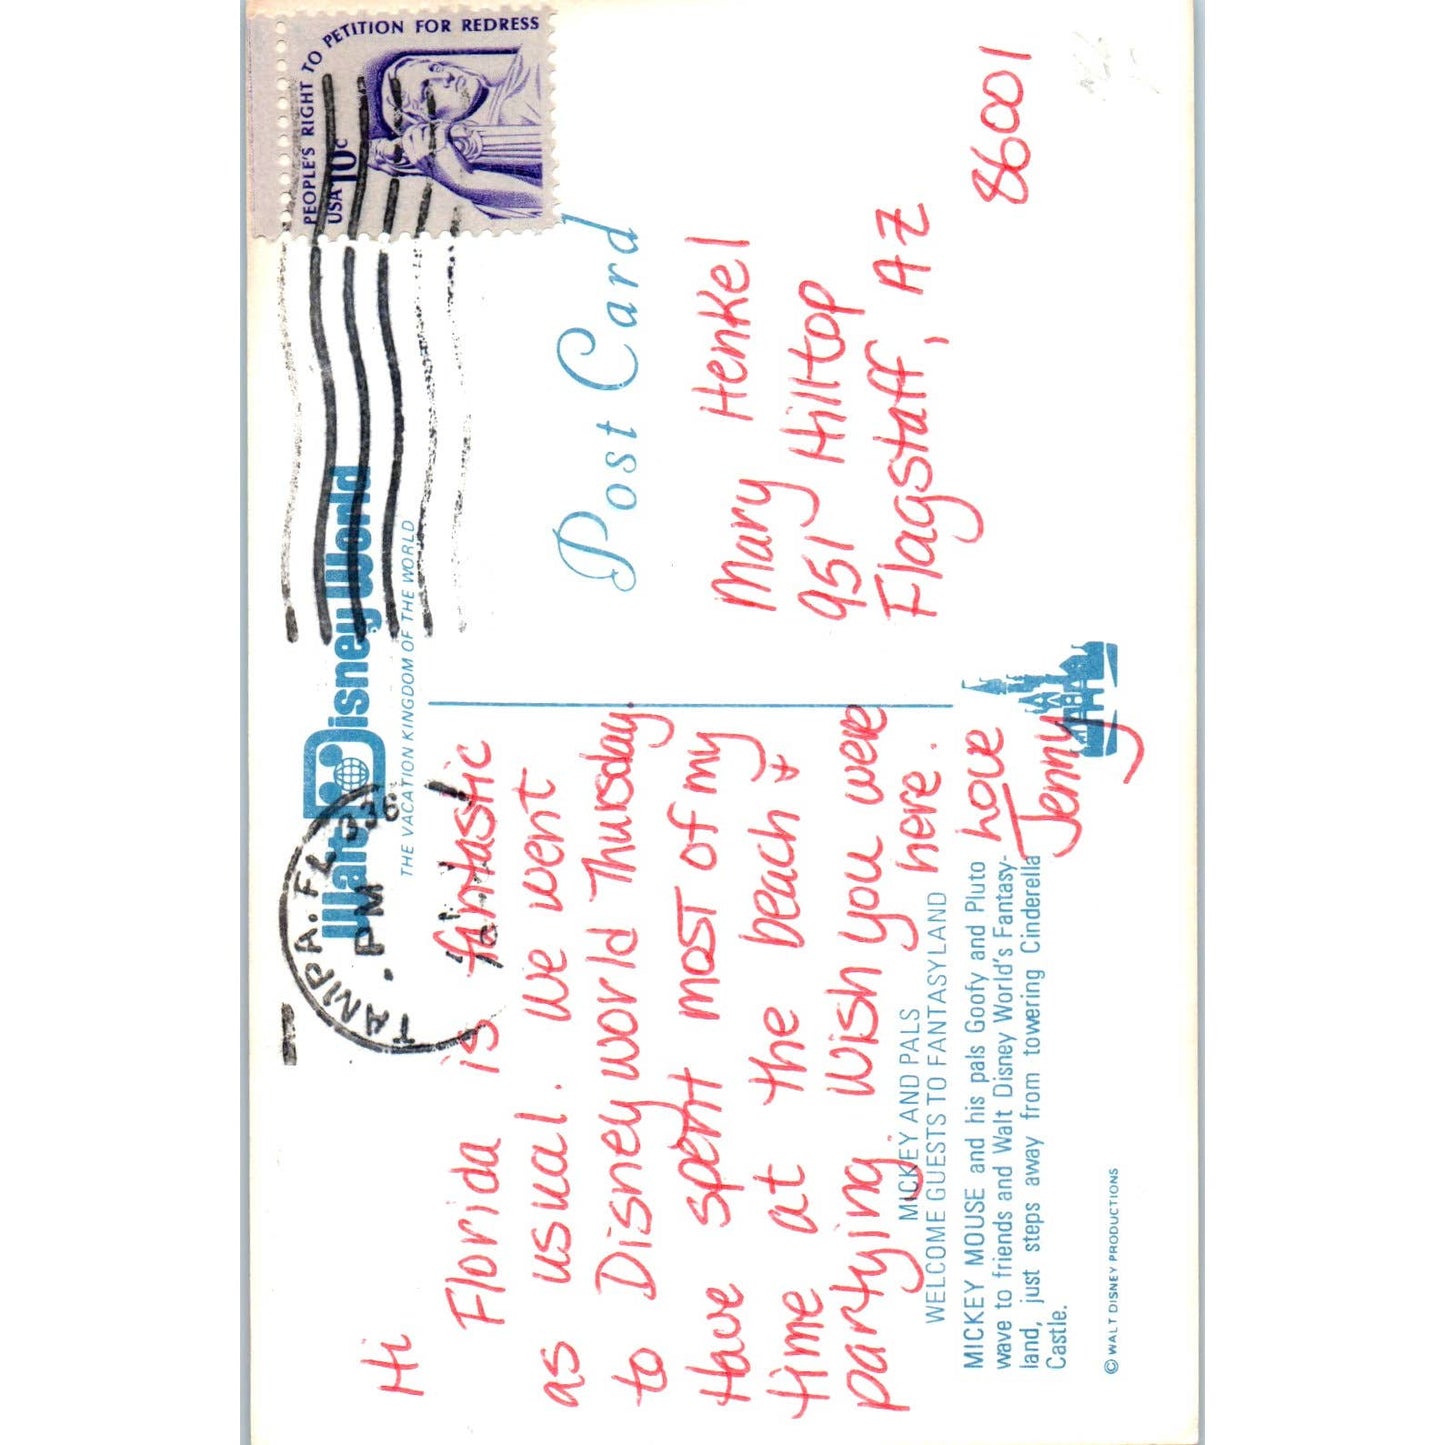 Walt Disney World
THE VACATION KINGDOM OF THE WORLD
PEOPLE'S RIGHT TO PETITION FOR REDRESS
USA 10c
TAMPA, FL
PM
Post Card
Hi
Florida is fantastic
as usual. We went
to Disneyworld Thursday.
Have spent most of my
time at the beach +
partying. Wish you were
here.
Love
Jenny
Mary Henkel
951 Hilltop
Flagstaff, AZ
86001
MICKEY AND PALS
WELCOME GUESTS TO FANTASYLAND
MICKEY MOUSE and his pals Goofy and Pluto
wave to friends and Walt Disney World's Fantasy-
land, just steps away from towering Cinderella
Castle.
© WALT DISNEY PRODUCTIONS